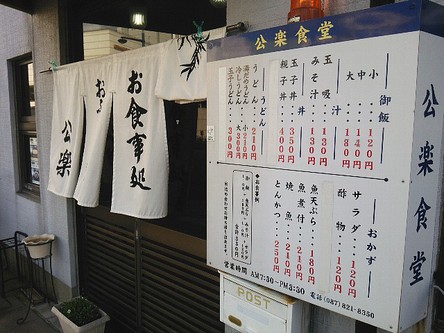 公楽食堂
御飯
小……120円
中……140円
大……180円
汁
みそ汁……130円
玉吸……130円
丼
玉子丼……350円
親子丼……400円
うどん
うどん 小210円
大300円
玉子うどん 300円
おかず
サラダ……120円
酢物……120円
魚天ぷら……180円
魚煮付……210円
焼魚……210円
とんかつ……250円
営業時間 AM7:30～PM3:30 電話(087)821-8350
公楽食堂
お食事処
お
公楽
POST